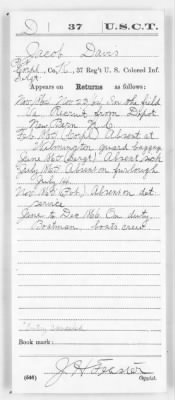 D 37 U.S.C.T.
Jacob Davis
Pvt
Corpl, Co. K, 37 Reg't U. S. Colored Inf.
Sergt
Appears on Returns as follows:
Nov 1864 Nov 22 64 in the field
Va Recruit from Depot
New Bern N.C.
Feb 1865 (Corpl) Absent at
Wilmington guard baggage
June 1865 (Sergt) Absent sick
July 1865 Absent on furlough
July
Nov 1865 (Pvt) Absent on det
service
June to Dec 1866 On duty
Boatman boats crew
Book mark:
J H
(546) Copyist.